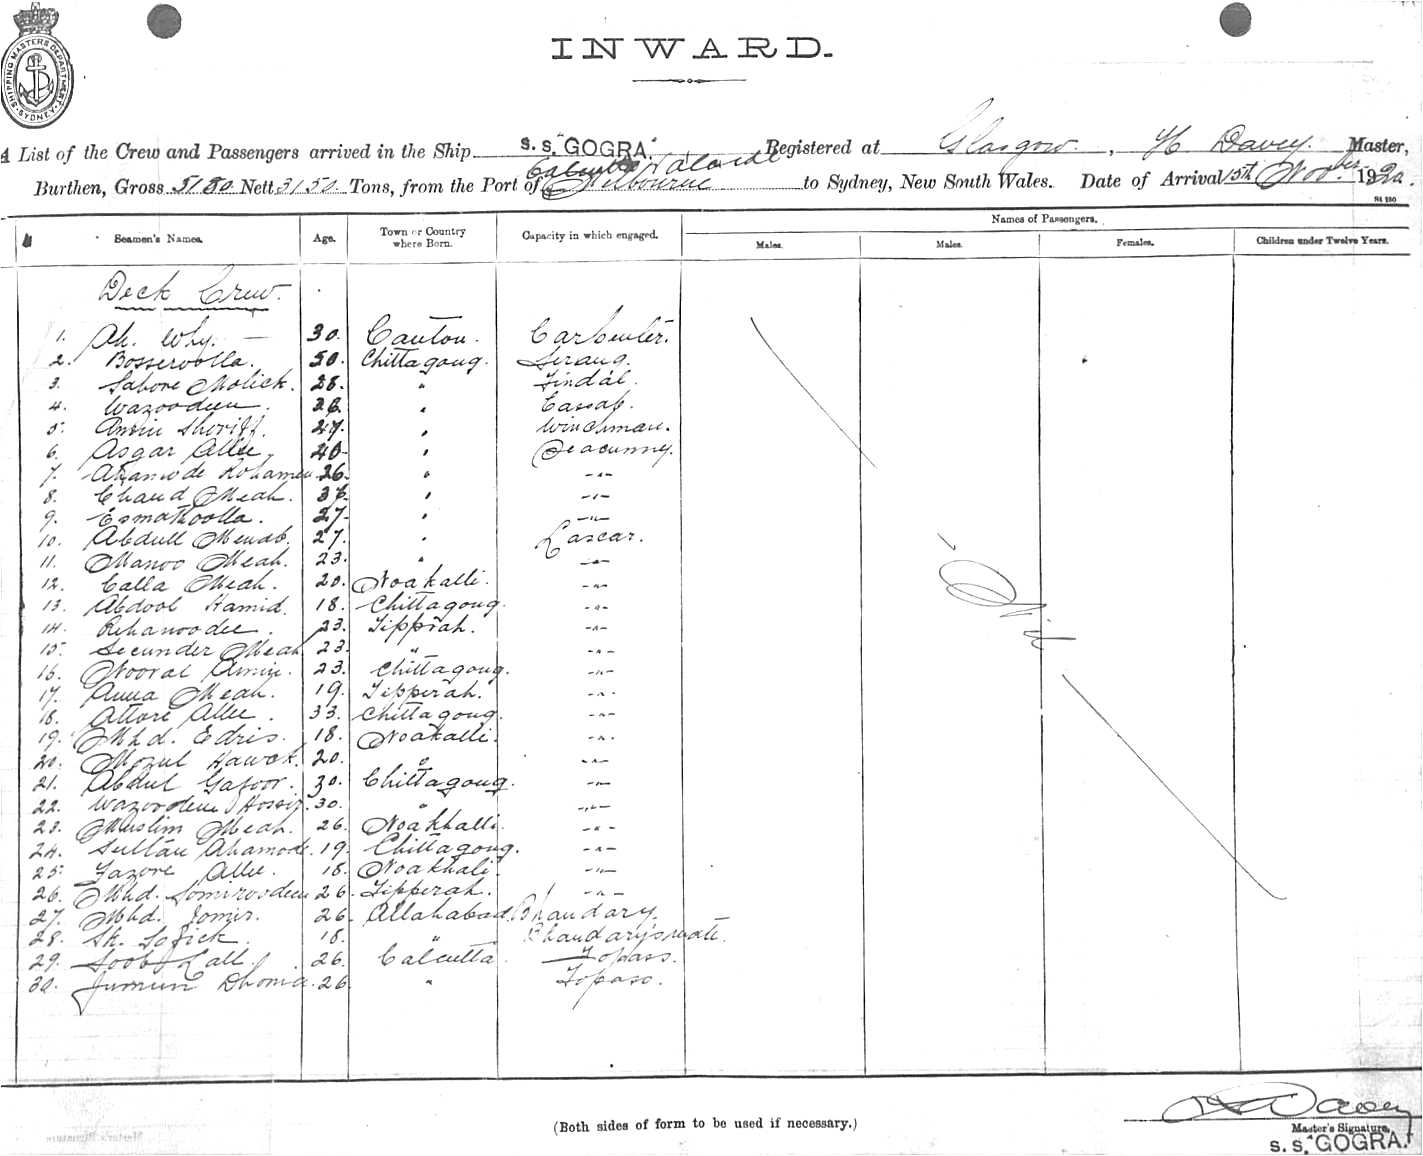 SHIPPING MASTERS DEPARTMENT SYDNEY
INWARD.
A List of the Crew and Passengers arrived in the Ship S.S. "GOGRA". Registered at Glasgow, H Davey. Master,
Burthen, Gross 5180 Nett 3150 Tons, from the Port of Calcutta Melbourne to Sydney, New South Wales. Date of Arrival 15th Novber 192
Seamen's Names. Age. Town or Country where Born. Capacity in which engaged. Names of Passengers.
Males. Males. Females. Children under Twelve Years.
Deck Crew.
1. Ah. Why. 30. Canton. Carpenter.
2. Bosseroolla. 50. Chittagong. Serang.
3. Sabore Molick. 28. " Tindal.
4. Wazoodeen. " Cassab.
5. Amin Sheriff. 27. " Winchman.
6. Asgar Allee. 40. " Seacunny.
7. Ahamode Rohamen 26. " -"-
8. Chand Meah. " -"-
9. Esmathoolla. 27. " -"-
10. Abdull 27. " Lascar.
11. Manoo Meah. 23. " -"-
12. Calla Meah. 20. Noakalli. -"-
13. Abdool Hamid. 18. Chittagong. -"-
14. Rehanoodee. 23. Tipprah. -"-
15. Secunder Meah 23. " -"-
16. Nooral Amin. 23. Chittagong. -"-
17. Anna Meah. 19. Tipperah. -"-
18. Attore Allee. 33. Chittagong. -"-
19. Mhd. Edris. 18. Noakalli. -"-
20. Mozul Hawck. 20. " -"-
21. Abdul Gafoor. 30. Chittagong. -"-
22. Wazoodeen 30. " -"-
23. Muslim Meah. 26. Noakhalli. -"-
24. Sultan Ahamode. 19. Chittagong. -"-
25. Fazore Allee. 18. Noakhali. -"-
26. Mhd. Somiroodeen 26. Tipperah. -"-
27. Mhd. Jomir. 26. Allahabad. Bhandary.
28. Sk. Sofick. 18. " Bhandary's mate.
29. Soob Lall. 26. Calcutta Topass.
30. Jumun Dhomia. 26. " Topass.
Nil
(Both sides of form to be used if necessary.)
H Davey
Master's Signature.
S.S. "GOGRA."